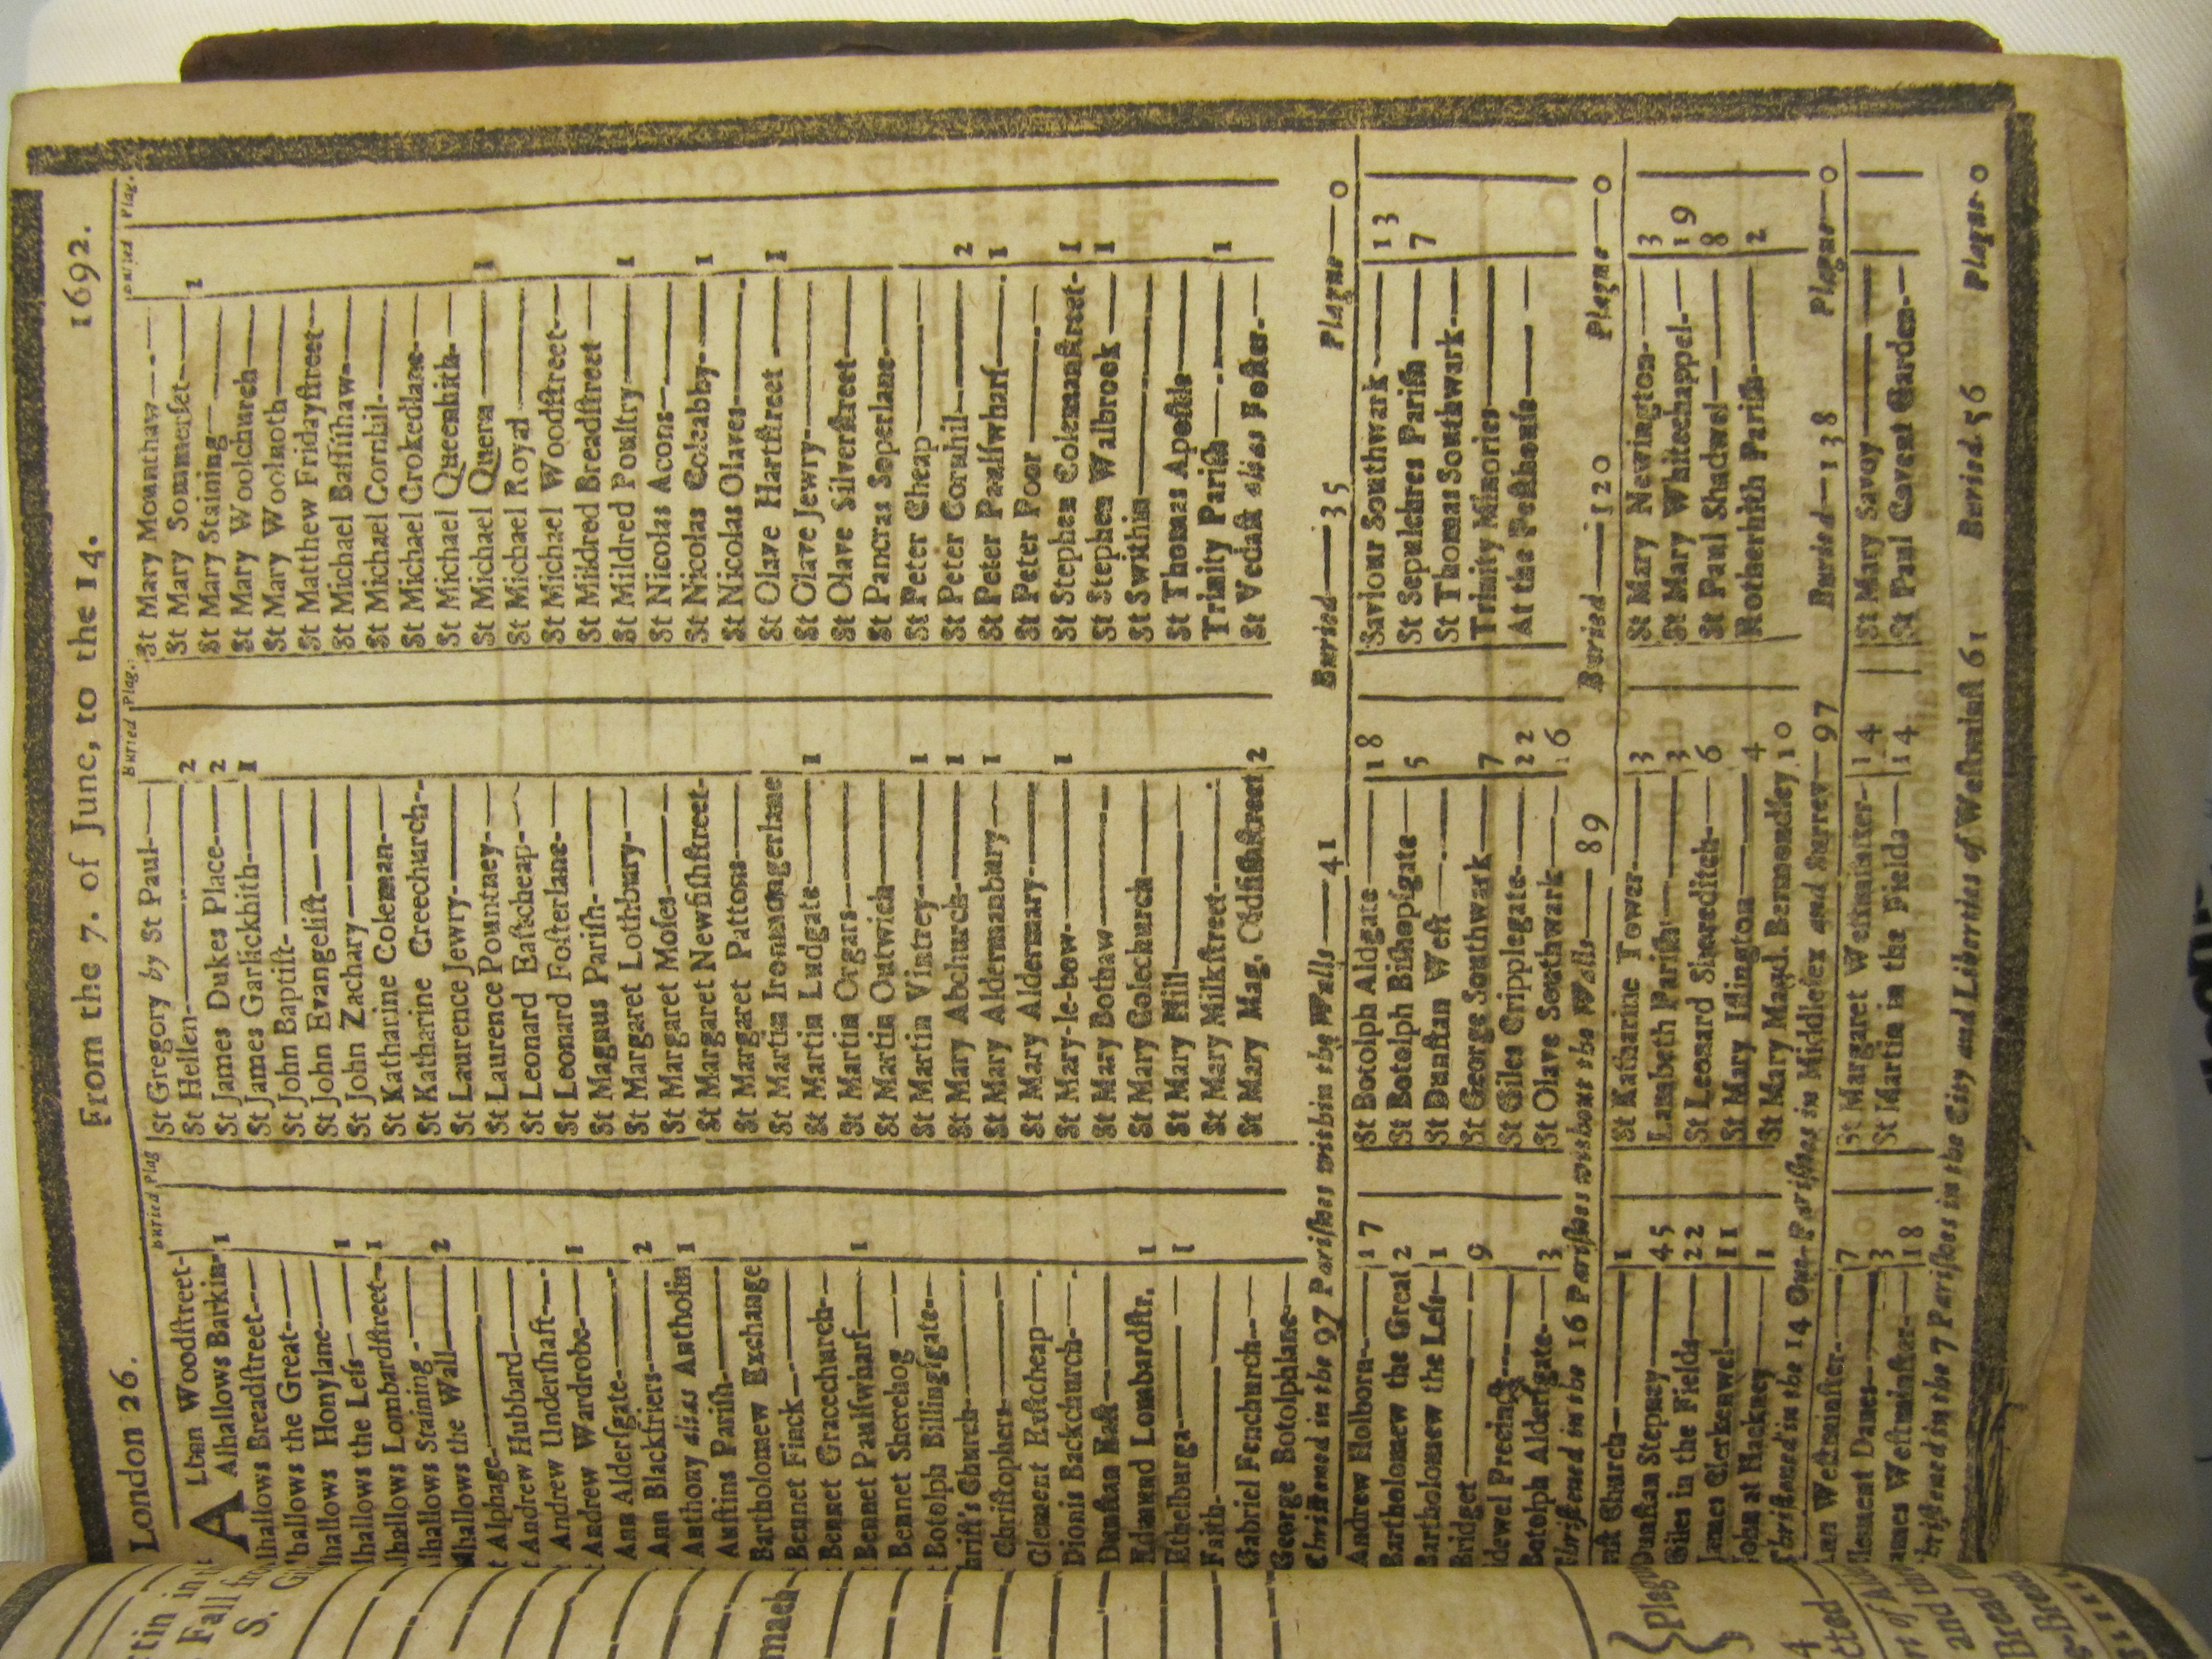 London 26. From the 7. of June, to the 14. 1692.
Buried Plag
ALban Woodſtreet
Alhallows Barkin 1
lhallows Breadſtreet
lhallows the Great
lhallows Honylane
lhallows the Leſs 1
lhallows Lombardſtreet 1
lhallows Staining
lhallows the Wall 2
t Alphage
t Andrew Hubbard
t Andrew Underſhaft
t Andrew Wardrobe 1
Ann Alderſgate
Ann Blackfriers 2
Anthony alias Antholin 1
Auſtins Pariſh
Bartholomew Exchange
Bennet Finck
Bennet Gracechurch
Bennet Paulſwharf 1
Bennet Sherehog
t Botolph Billingſgate
hriſt's Church
Chriſtophers
Clement Eaſtcheap
Dionis Backchurch
Dunſtan Eaſt
Edmund Lombardſtr. 1
Ethelburga 1
Faith
Gabriel Fenchurch
George Botolphlane
Buried Plag.
St Gregory by St Paul
St Hellen 2
St James Dukes Place 2
St James Garlickhith 1
St John Baptiſt
St John Evangeliſt
St John Zachary
St Katharine Coleman
St Katharine Creechurch
St Laurence Jewry
St Laurence Pountney
St Leonard Eaſtcheap
St Leonard Foſterlane
St Magnus Pariſh
St Margaret Lothbury
St Margaret Moſes
St Margaret Newfiſhſtreet
St Margaret Pattons
St Martin Ironmongerlane
St Martin Ludgate 1
St Martin Orgars
St Martin Outwich
St Martin Vintrey 1
St Mary Abchurch 1
St Mary Aldermanbury 1
St Mary Aldermary
St Mary-le-bow 1
St Mary Bothaw
St Mary Colechurch
St Mary Hill
St Mary Milkſtreet
St Mary Mag. Oldfiſhſtreet 2
Buried Plag.
St Mary Mounthaw
St Mary Sommerſet 1
St Mary Staining
St Mary Woolchurch
St Mary Woolnoth
St Matthew Fridayſtreet
St Michael Baſſiſhaw
St Michael Cornhil
St Michael Crokedlane
St Michael Queenhith
St Michael Quern 1
St Michael Royal
St Michael Woodſtreet
St Mildred Breadſtreet
St Mildred Poultry 1
St Nicolas Acons
St Nicolas Coleabby 1
St Nicolas Olaves
St Olave Hartſtreet 1
St Olave Jewry
St Olave Silverſtreet
St Pancras Soperlane
St Peter Cheap
St Peter Cornhil 2
St Peter Paulſwharf 1
St Peter Poor
St Stephen Colemanſtreet 1
St Stephen Walbrook 1
St Swithin
St Thomas Apoſtle
Trinity Pariſh 1
St Vedaſt alias Foſter
Chriſtened in the 97 Pariſhes within the Walls 41 Buried 35 Plague 0
Andrew Holborn 17
Bartholomew the Great 2
Bartholomew the Leſs 1
Bridget 9
idewel Precinct
Botolph Alderſgate 3
St Botolph Aldgate 18
St Botolph Biſhopſgate 5
St Dunſtan Weſt
St George Southwark 7
St Giles Cripplegate 22
St Olave Southwark 16
Saviour Southwark 13
St Sepulchres Pariſh 7
St Thomas Southwark
Trinity Minories
At the Peſthouſe
hriſtened in the 16 Pariſhes without the Walls 89 Buried 120 Plague 0
Church 1
Dunſtan Stepney 45
Giles in the Fields 22
James Clerkenwel 11
John at Hackney 1
St Katharine Tower 3
Lambeth Pariſh 3
St Leonard Shoreditch 6
St Mary Iſlington 4
St Mary Magd. Bermondſey 10
St Mary Newington 3
St Mary Whitechappel 19
St Paul Shadwel 8
Rotherhith Pariſh 2
Chriſtened in the 14 Out-Pariſhes in Middleſex and Surrey 97 Buried 138 Plague 0
Weſtminſter 7
lement Danes 3
ames Weſtminſter 18
St Margaret Weſtminſter 14
St Martin in the Fields 14
St Mary Savoy
St Paul Covent Garden
hriſtened in the 7 Pariſhes in the City and Liberties of Weſtminſt. 61 Buried 56 Plague 0
tin in
Fall fro
S. Gi
Plag
4
cted
rt of
and
Bread